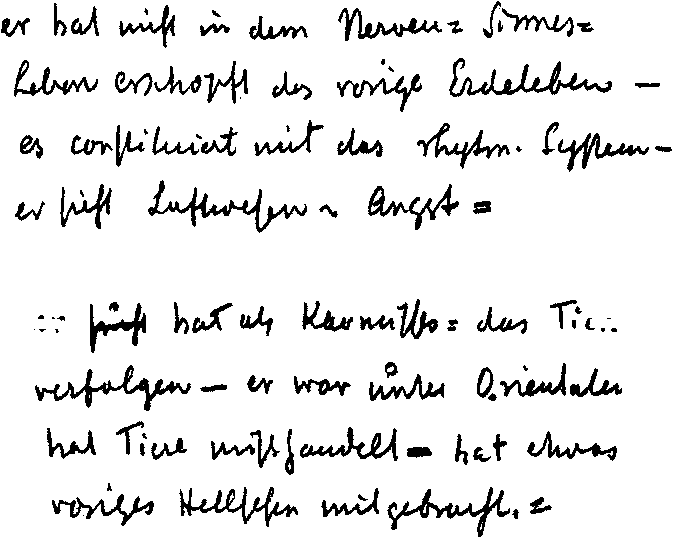 er hat nicht in dem Nerven= Sinnes=
Leben erschöpft das vorige Erdeleben —
es constituiert mit das rhytm. System —
er sieht Luftwesen ~ Angst =
hat als das
verfolgen — er war unter Orientalen
hat Tiere mißhandelt — hat etwas
voriges Hellsehen mitgebracht. =